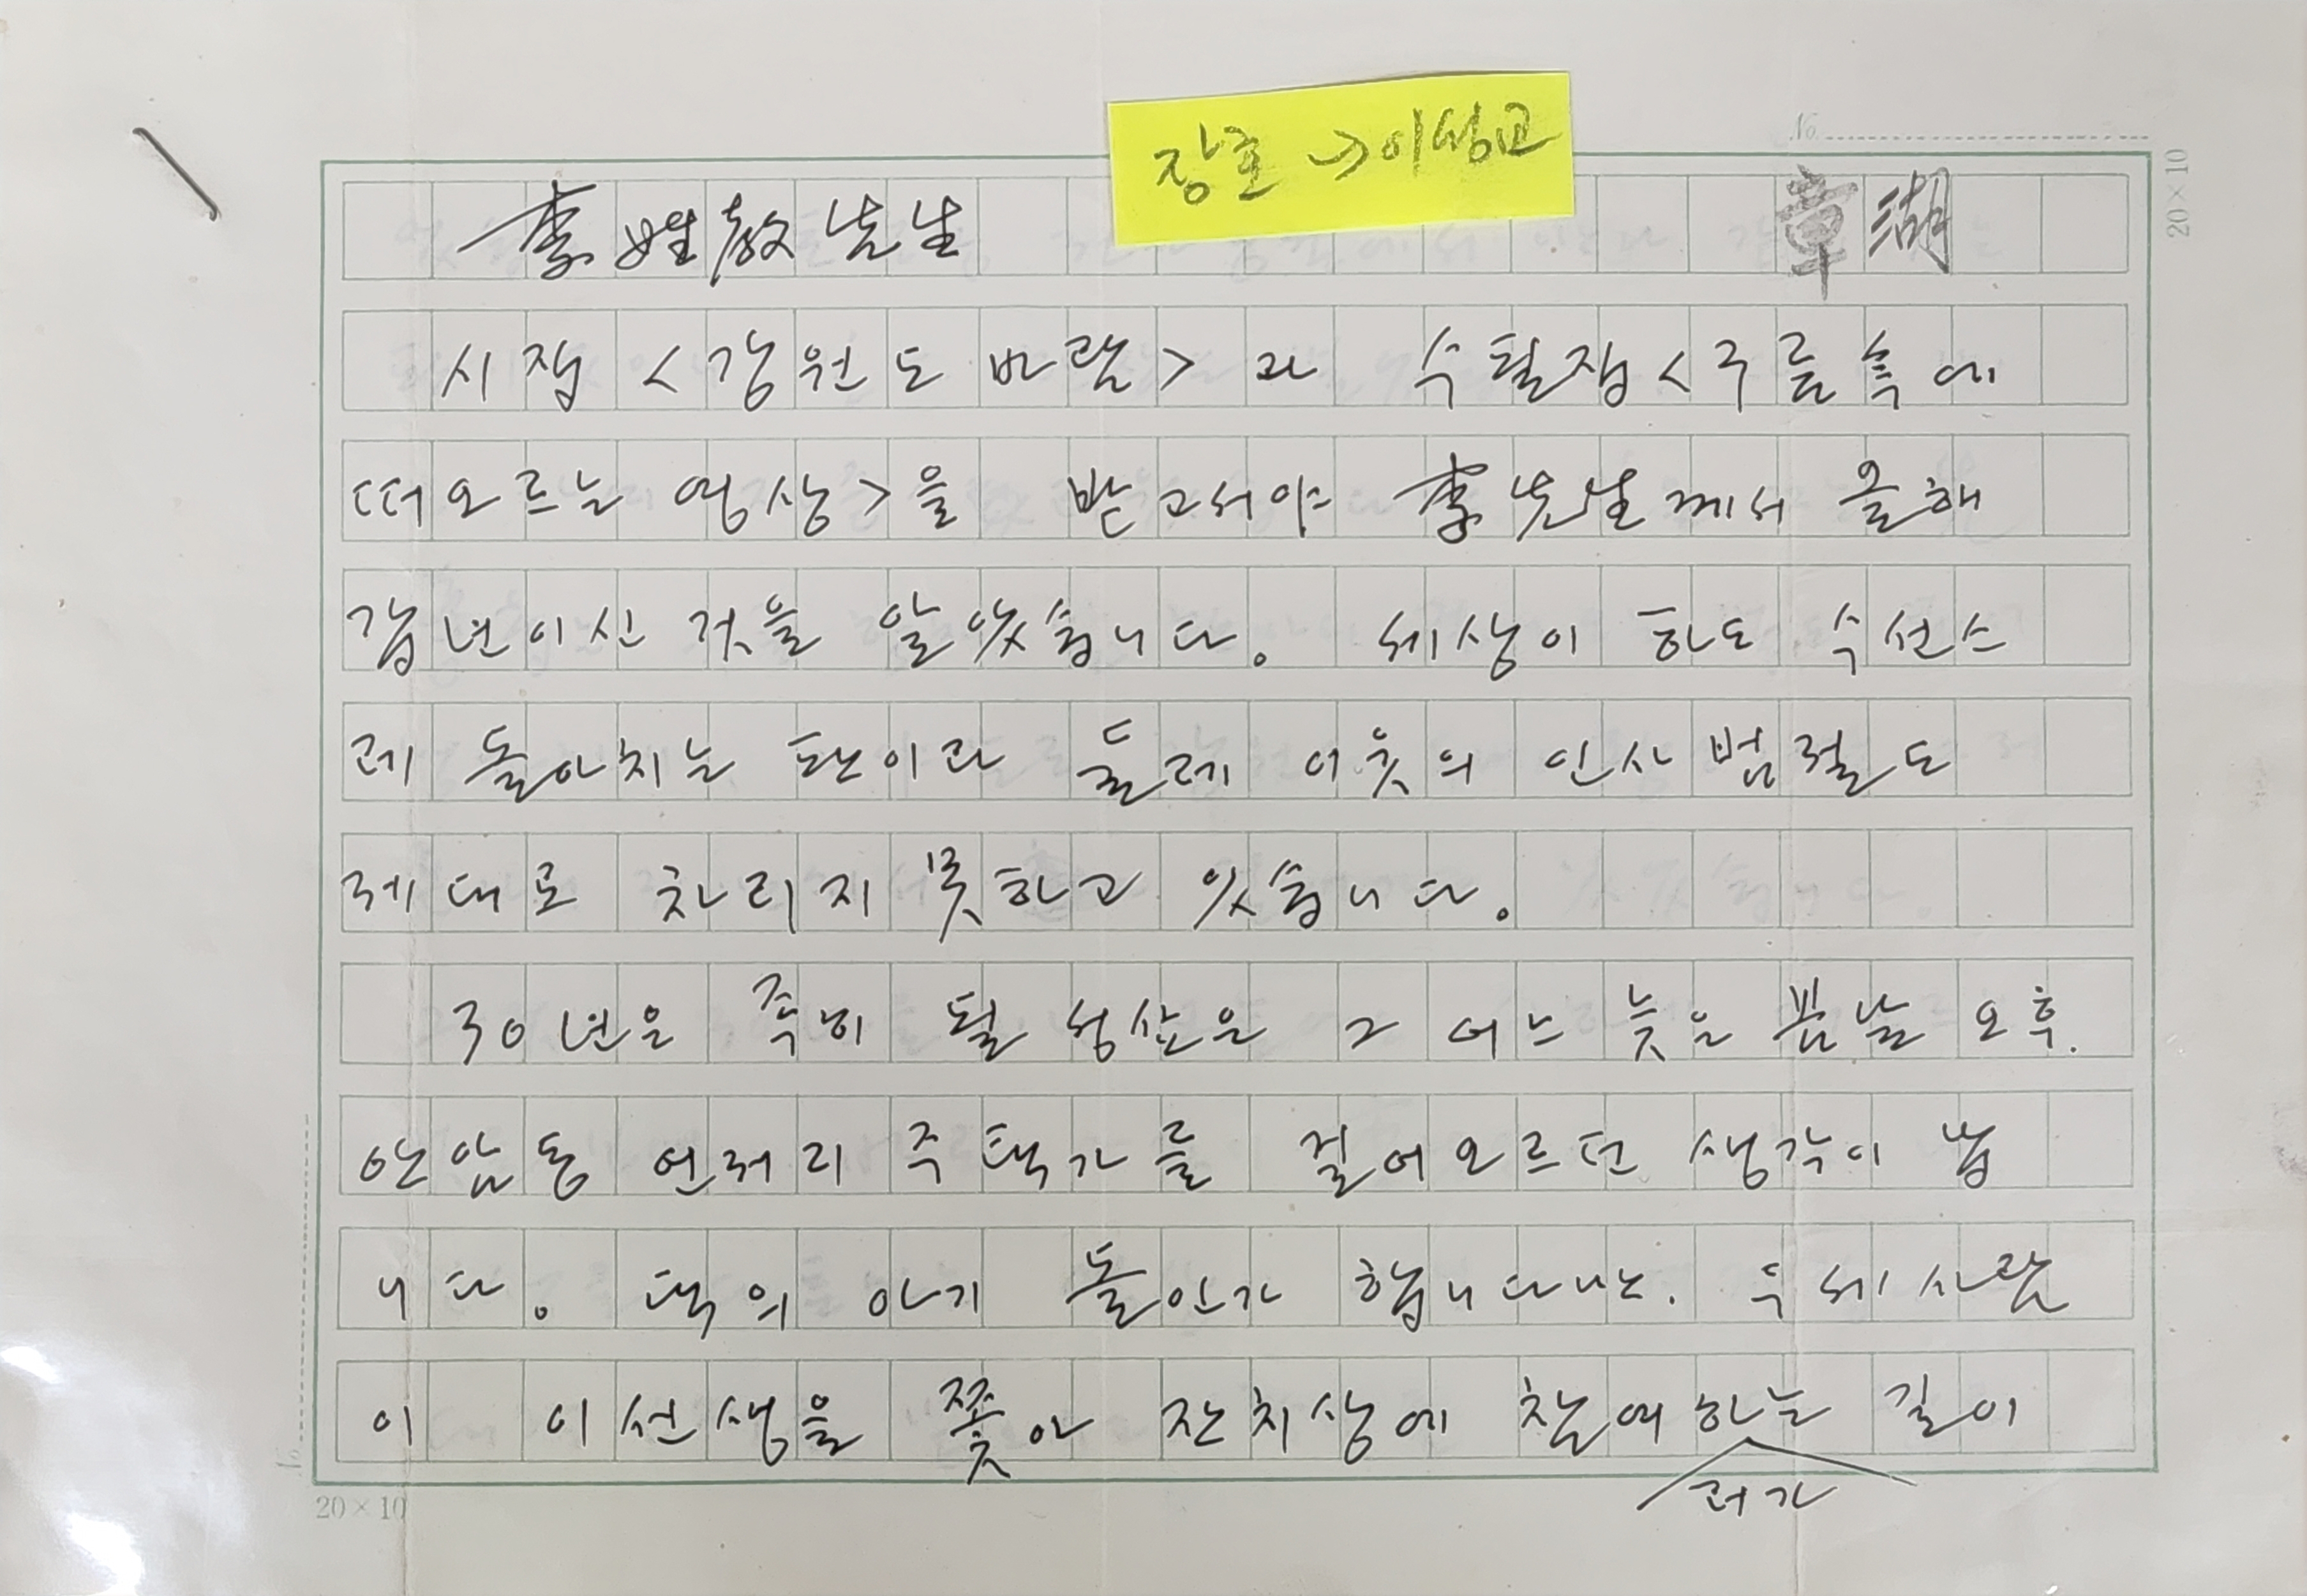 장호 → 이성교
No.
20×10
李姓敎先生 章湖
시집 <강원도 바람>과 수필집 <구름 속에
떠오르는 영상>을 받고서야 李先生께서 올해
갑년이신 것을 알았습니다. 세상이 하도 수선스
레 돌아치는 판이라 둘레 이웃의 인사 범절도
제대로 차리지 못하고 있습니다.
30년은 족히 될 성싶은 그 어느 늦은 봄날 오후.
안암동 언저리 주택가를 걸어오르던 생각이 납
니다. 댁의 아기 돌인가 합니다만. 두세 사람
이 이선생을 쫓아 잔치상에 참여하는 길이
러 가
No.
20×10